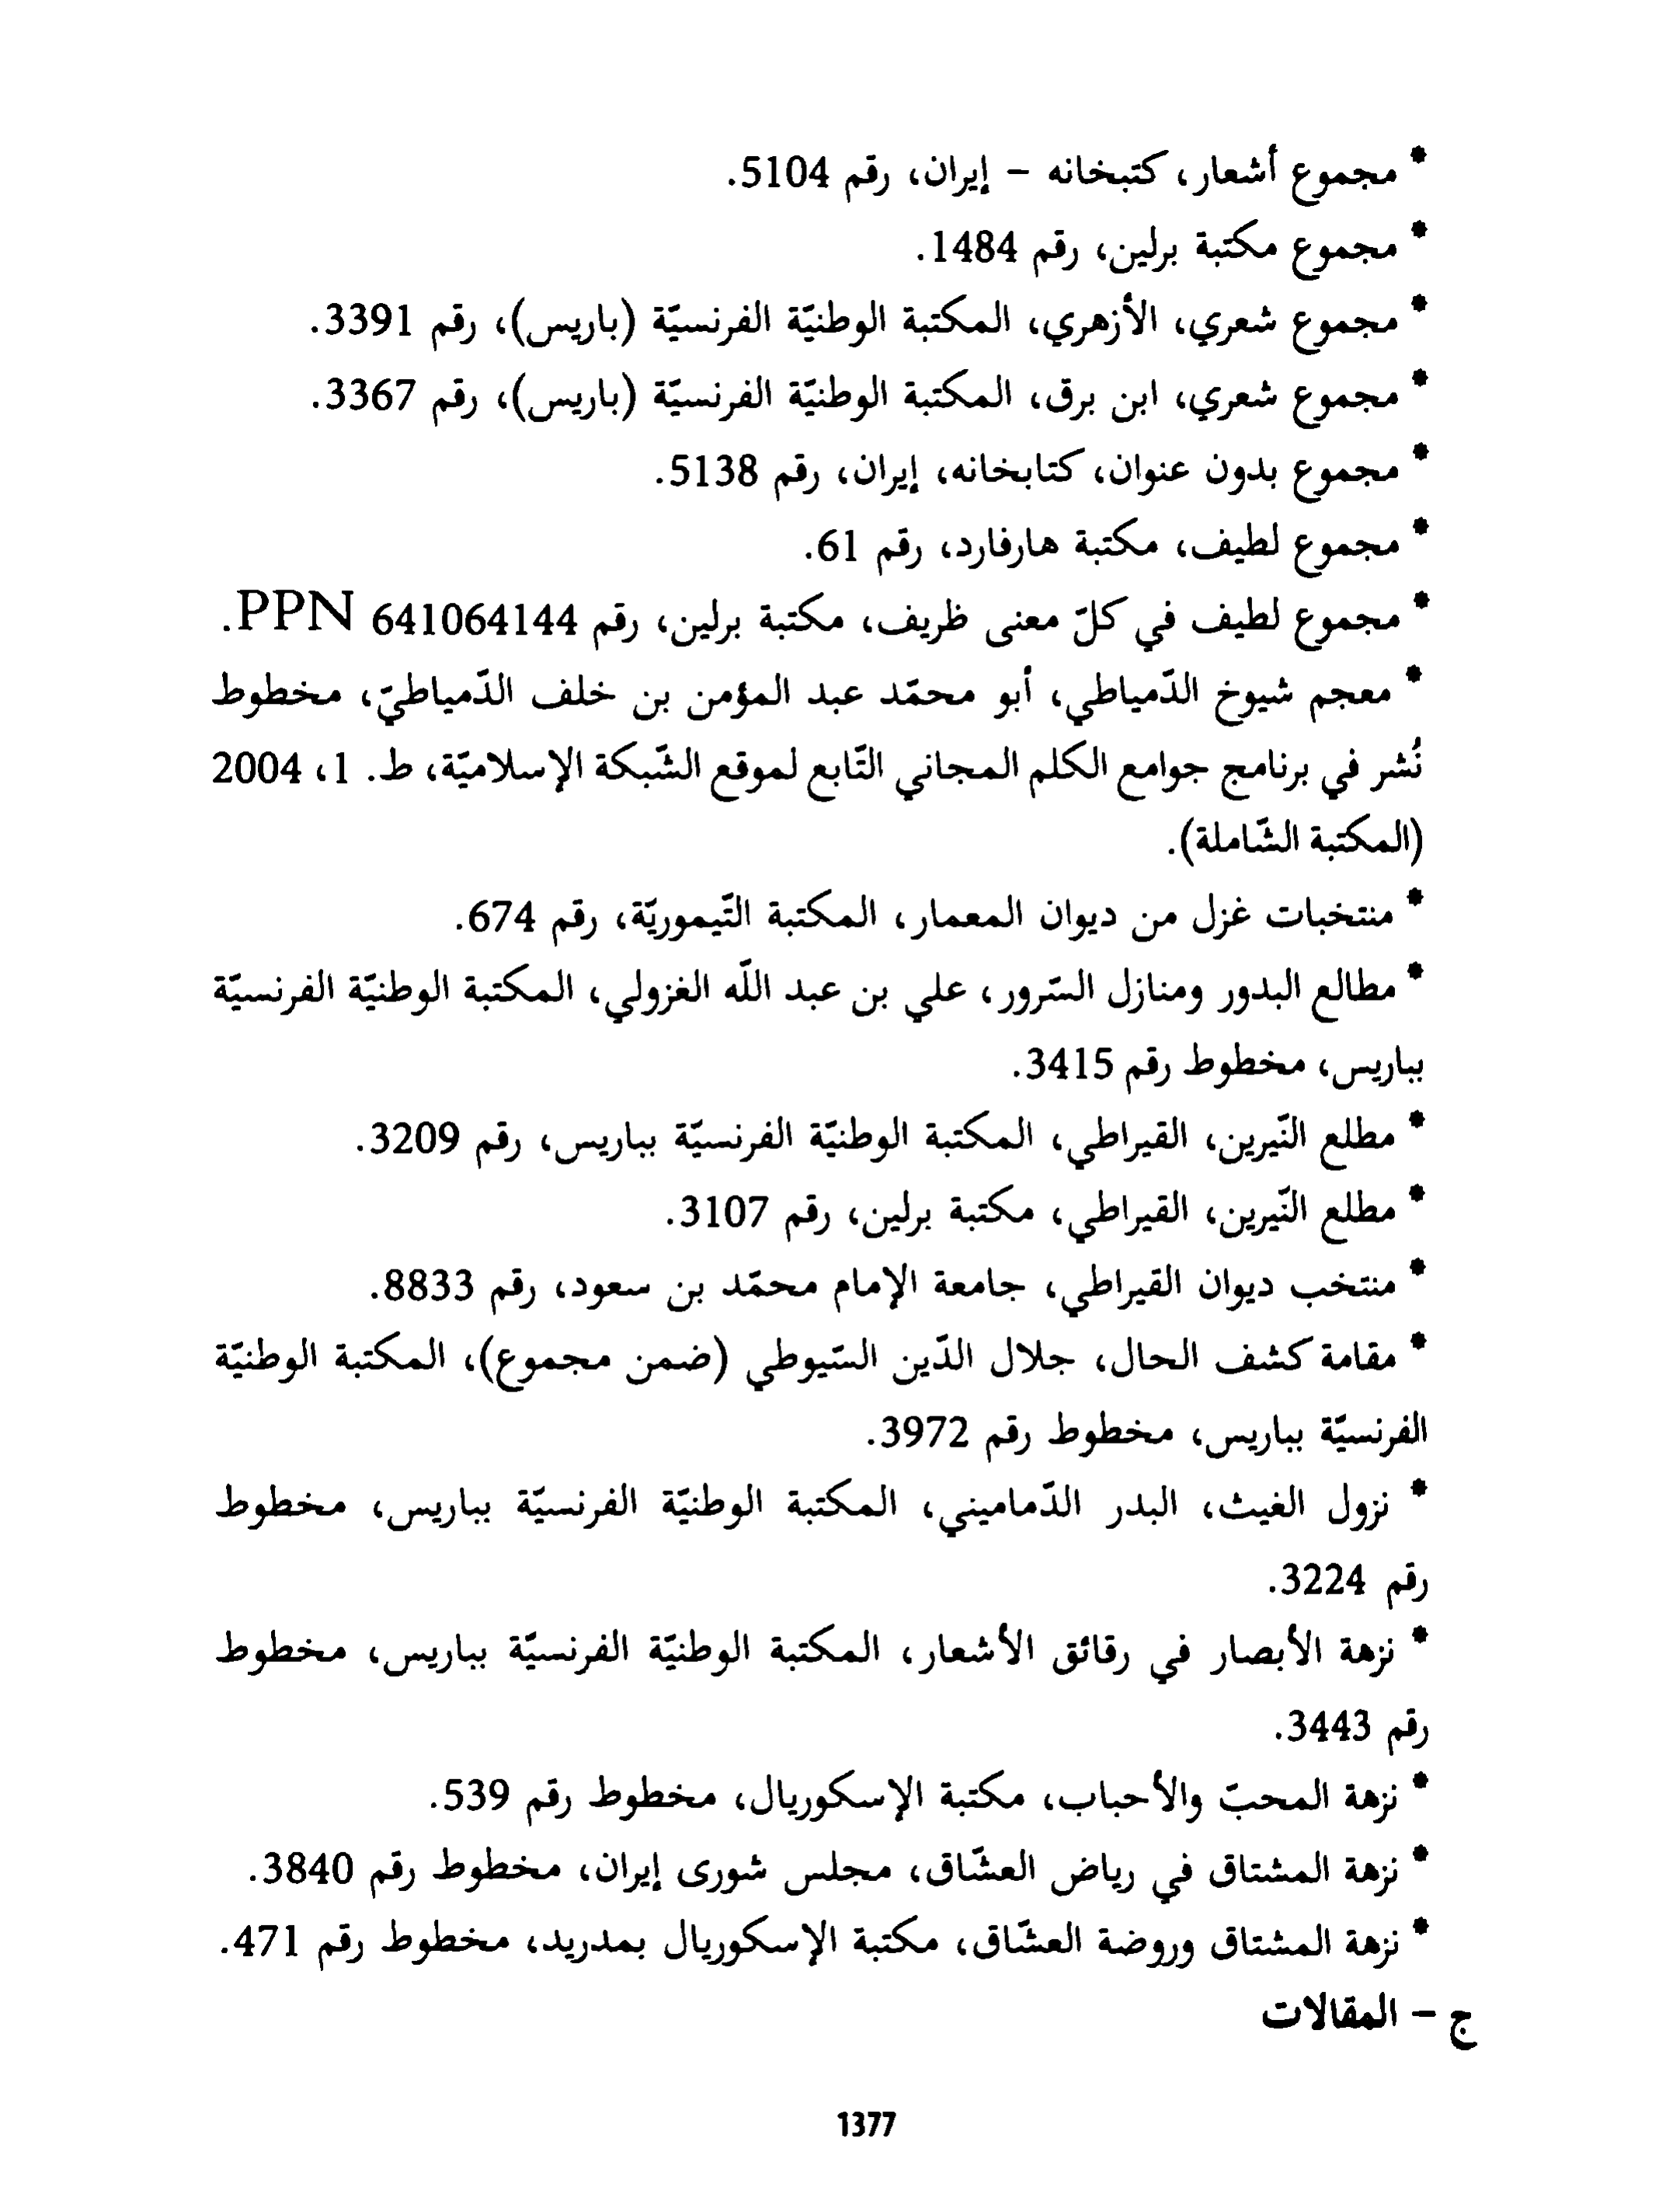 * مجموع أشعار، كتبخانه – إيران، رقم 5104.
* مجموع مكتبة برلين، رقم 1484.
* مجموع شعري، الأزهري، المكتبة الوطنيّة الفرنسيّة (باريس)، رقم 3391.
* مجموع شعري، ابن برق، المكتبة الوطنيّة الفرنسيّة (باريس)، رقم 3367.
* مجموع بدون عنوان، كتابخانه، إيران، رقم 5138.
* مجموع لطيف، مكتبة هارفارد، رقم 61.
* مجموع لطيف في كلّ معنى ظريف، مكتبة برلين، رقم 641064144 PPN.
* معجم شيوخ الدّمياطي، أبو محمّد عبد المؤمن بن خلف الدّمياطيّ، مخطوط
نُشر في برنامج جوامع الكلم المجاني التّابع لموقع الشّبكة الإسلاميّة، ط. 1، 2004
(المكتبة الشّاملة).
* منتخبات غزل من ديوان المعمار، المكتبة التّيموريّة، رقم 674.
* مطالع البدور ومنازل السّرور، علي بن عبد اللّه الغزولي، المكتبة الوطنيّة الفرنسيّة
بباريس، مخطوط رقم 3415.
* مطلع النّيرين، القيراطي، المكتبة الوطنيّة الفرنسيّة بباريس، رقم 3209.
* مطلع النّيرين، القيراطي، مكتبة برلين، رقم 3107.
* منتخب ديوان القيراطي، جامعة الإمام محمّد بن سعود، رقم 8833.
* مقامة كشف الحال، جلال الدّين السّيوطي (ضمن مجموع)، المكتبة الوطنيّة
الفرنسيّة بباريس، مخطوط رقم 3972.
* نزول الغيث، البدر الدّماميني، المكتبة الوطنيّة الفرنسيّة بباريس، مخطوط
رقم 3224.
* نزهة الأبصار في رقائق الأشعار، المكتبة الوطنيّة الفرنسيّة بباريس، مخطوط
رقم 3443.
* نزهة المحبّ والأحباب، مكتبة الإسكوريال، مخطوط رقم 539.
* نزهة المشتاق في رياض العشّاق، مجلس شورى إيران، مخطوط رقم 3840.
* نزهة المشتاق وروضة العشّاق، مكتبة الإسكوريال بمدريد، مخطوط رقم 471.
ج – المقالات
1377